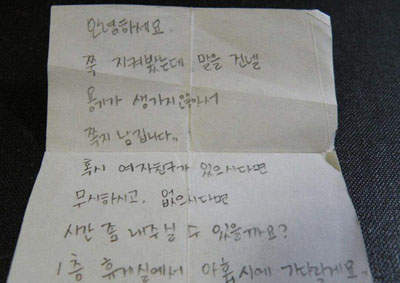 안녕하세요.
쭉 지켜봤는데 말을 건넬
용기가 생기지않아서
쪽지 남깁니다..
혹시 여자친구가 있으시다면
무시하시고, 없으시다면
시간 좀 내주실 수 있을까요?
1층 휴게실에서 아홉시에 기다릴게요.